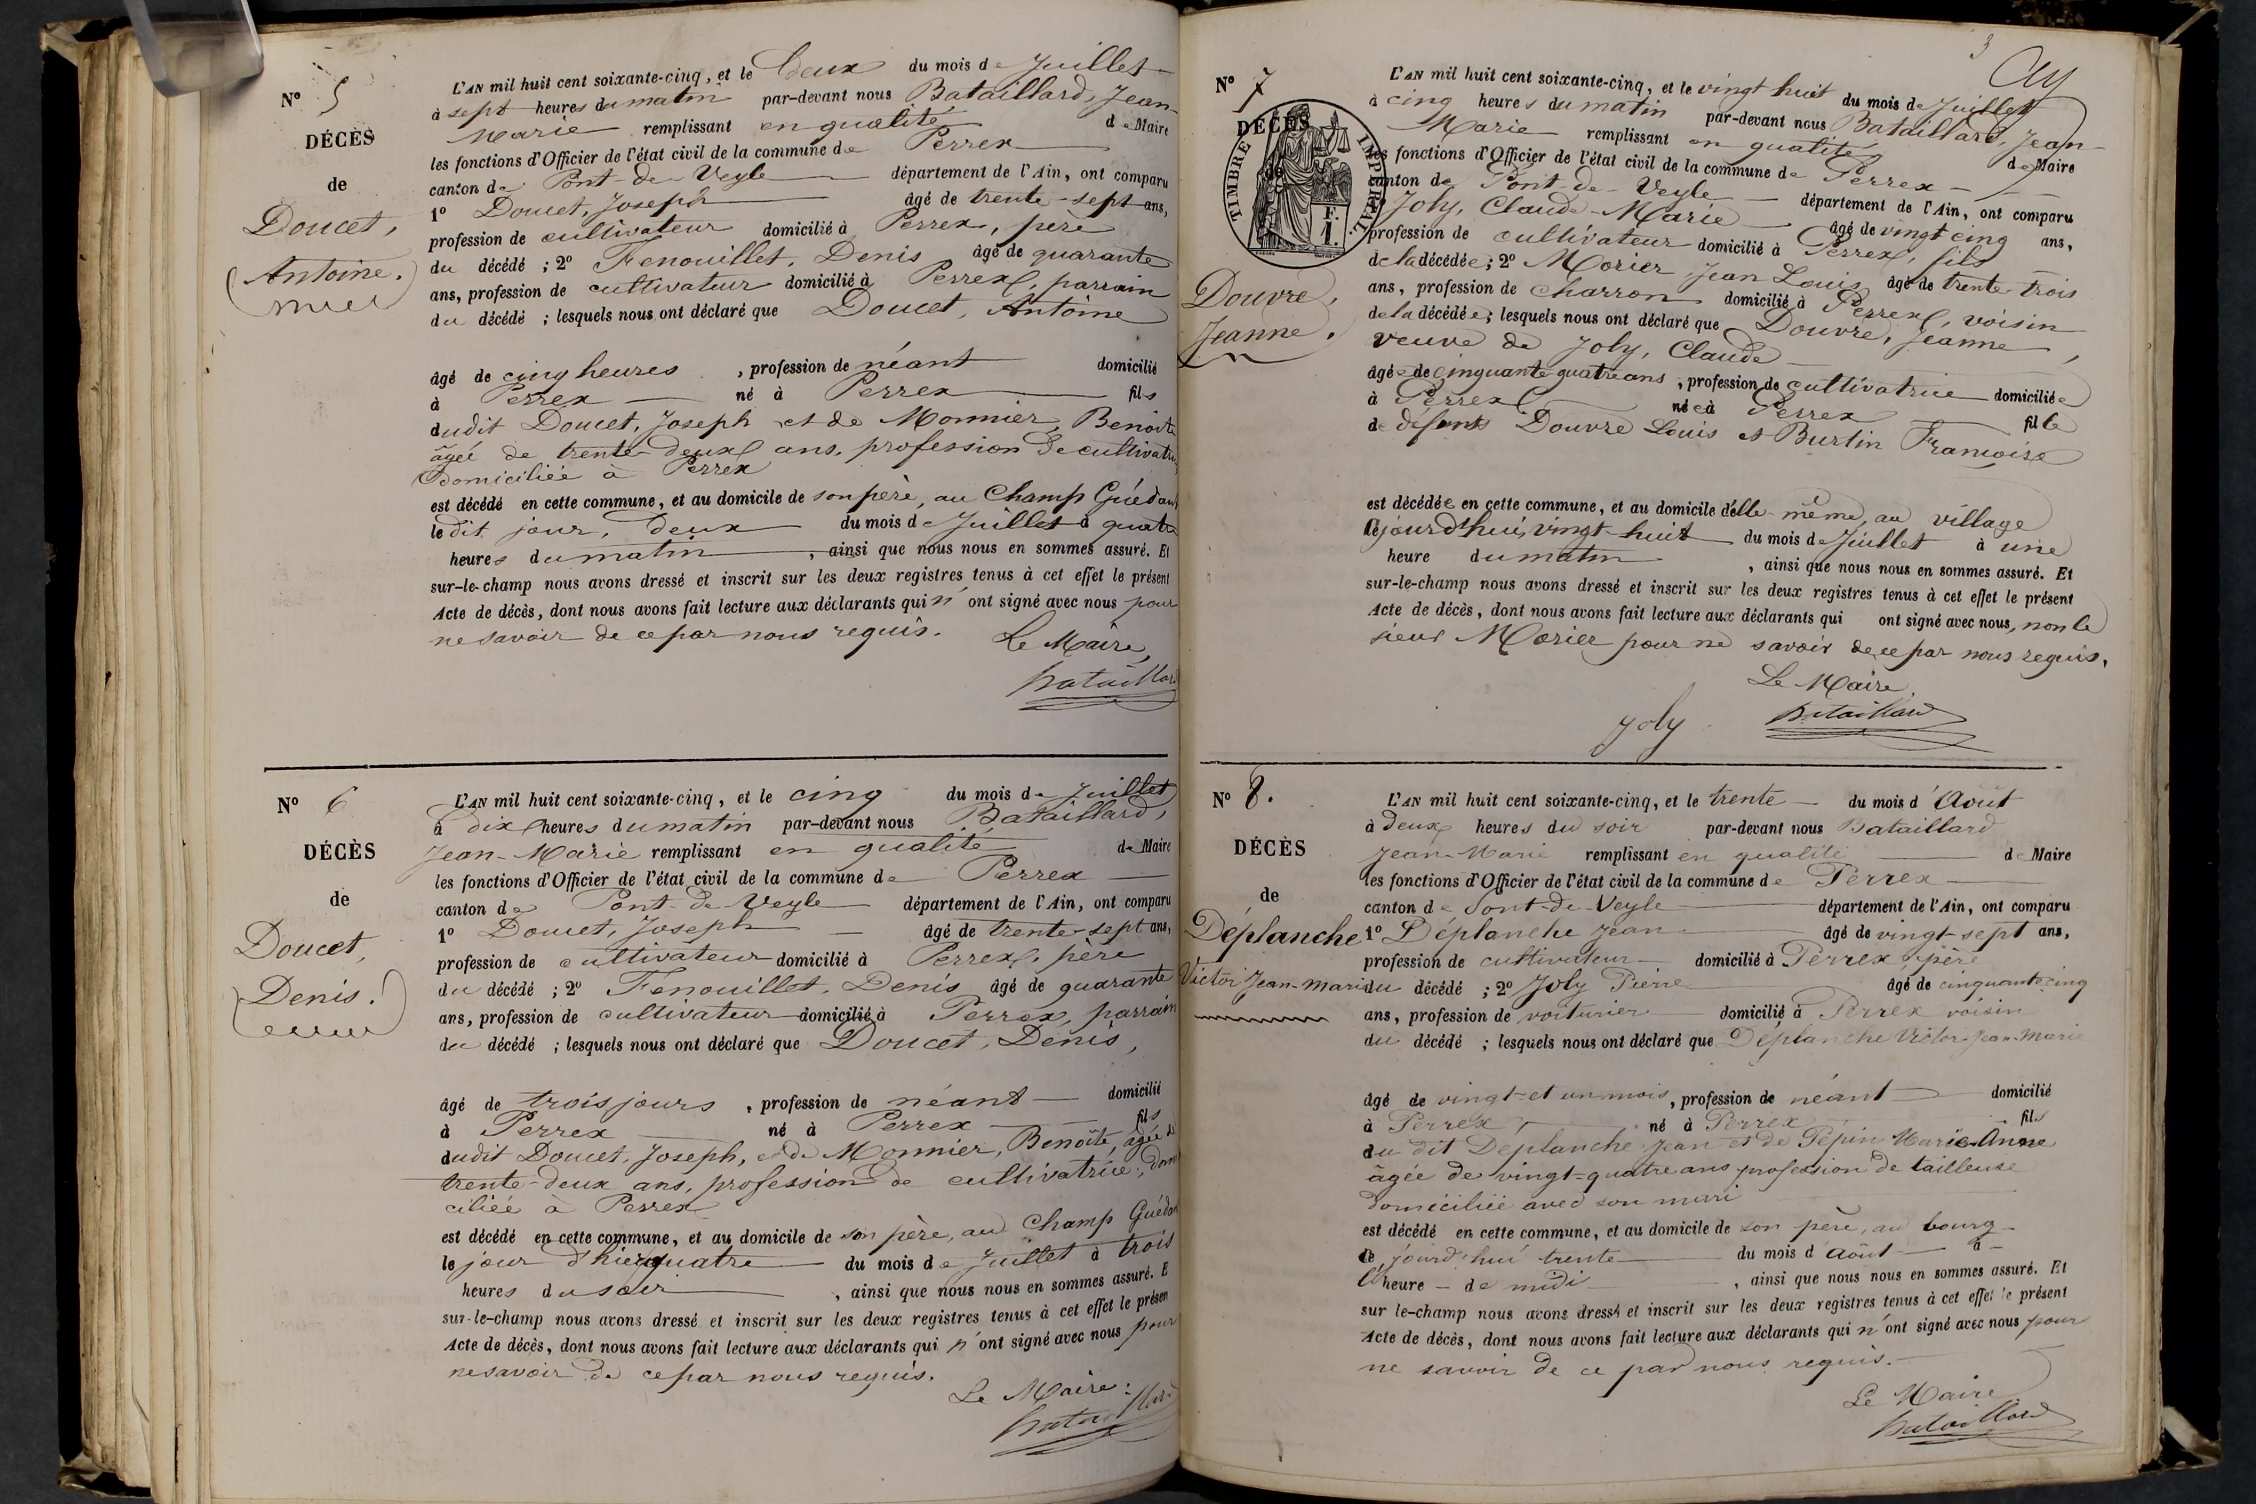 N° 5
DÉCÈS
de
Doucet,
Antoine.
L'AN mil huit cent soixante-cinq, et le deux du mois de Juillet
à sept heures du matin par-devant nous Bataillard, Jean-
Marie remplissant en qualité de Maire
les fonctions d'Officier de l'état civil de la commune de Perrex
canton de Pont-de-Veyle département de l'Ain, ont comparu
1° Doucet, Joseph âgé de trente-sept ans,
profession de cultivateur domicilié à Perrex, père
du décédé ; 2° Fenouillet, Denis âgé de quarante
ans, profession de cultivateur domicilié à Perrex, parrain
du décédé ; lesquels nous ont déclaré que Doucet, Antoine
âgé de cinq heures , profession de néant domicilié
à Perrex né à Perrex fils
dudit Doucet, Joseph et de Monnier, Benoite
âgée de trente-deux ans, profession de cultivatrice
domiciliée à Perrex
est décédé en cette commune, et au domicile de son père, au Champ Guédan
le dit jour, deux du mois de Juillet à quatre
heures du matin , ainsi que nous nous en sommes assuré. Et
sur-le-champ nous avons dressé et inscrit sur les deux registres tenus à cet effet le présent
Acte de décès, dont nous avons fait lecture aux déclarants qui n'ont signé avec nous pour
ne savoir de ce par nous requis.
Le Maire,
Bataillard
N° 6
DÉCÈS
de
Doucet,
Denis.
L'AN mil huit cent soixante-cinq, et le cinq du mois de Juillet
à dix heures du matin par-devant nous Bataillard,
Jean-Marie remplissant en qualité de Maire
les fonctions d'Officier de l'état civil de la commune de Perrex
canton de Pont-de-Veyle département de l'Ain, ont comparu
1° Doucet, Joseph âgé de trente-sept ans,
profession de cultivateur domicilié à Perrex, père
du décédé ; 2° Fenouillet, Denis âgé de quarante
ans, profession de cultivateur domicilié à Perrex, parrain
du décédé ; lesquels nous ont déclaré que Doucet, Denis,
âgé de trois jours , profession de néant domicilié
à Perrex né à Perrex fils
dudit Doucet, Joseph, et de Monnier, Benoîte, âgée de
trente-deux ans, profession de cultivatrice, domi
ciliée à Perrex
est décédé en cette commune, et au domicile de son père, au Champ Guédan
le jour d'hier quatre du mois de Juillet à trois
heures du soir , ainsi que nous nous en sommes assuré. E
sur-le-champ nous avons dressé et inscrit sur les deux registres tenus à cet effet le présen
Acte de décès, dont nous avons fait lecture aux déclarants qui n'ont signé avec nous pour
ne savoir de ce par nous requis.
Le Maire :
Bataillard
3
N° 7
DÉCÈS
de
TIMBRE IMPÉRIAL
F.
1.
Douvre,
Jeanne.
L'AN mil huit cent soixante-cinq, et le vingt huit du mois de Juillet
à cinq heures du matin par-devant nous Bataillard, Jean-
Marie remplissant en qualité de Maire
les fonctions d'Officier de l'état civil de la commune de Perrex
canton de Pont-de-Veyle département de l'Ain, ont comparu
Joly, Claude-Marie âgé de vingt cinq ans,
profession de cultivateur domicilié à Perrex, fils
de la décédée ; 2° Morier, Jean Louis âgé de trente-trois
ans, profession de charron domicilié à Perrex, voisin
de la décédée ; lesquels nous ont déclaré que Douvre, Jeanne,
veuve de Joly, Claude
âgée de cinquante quatre ans , profession de cultivatrice domiciliée
à Perrex née à Perrex fille
de défunts Douvre Louis et Burtin Françoise
est décédée en cette commune, et au domicile d'elle-même, au village
cejourd'hui, vingt-huit du mois de Juillet à une
heure du matin , ainsi que nous nous en sommes assuré. Et
sur-le-champ nous avons dressé et inscrit sur les deux registres tenus à cet effet le présent
Acte de décès, dont nous avons fait lecture aux déclarants qui ont signé avec nous, non le
sieur Morier pour ne savoir de ce par nous requis.
Le Maire
Joly Bataillard
N° 8.
DÉCÈS
de
Déplanche
Victor Jean-Marie
L'AN mil huit cent soixante-cinq, et le trente du mois d'Août
à deux heures du soir par-devant nous Bataillard
Jean-Marie remplissant en qualité de Maire
les fonctions d'Officier de l'état civil de la commune de Perrex
canton de Pont-de-Veyle département de l'Ain, ont comparu
1° Déplanche Jean âgé de vingt-sept ans,
profession de cultivateur domicilié à Perrex, père
du décédé ; 2° Joly Pierre âgé de cinquante cinq
ans, profession de voiturier domicilié à Perrex voisin
du décédé ; lesquels nous ont déclaré que Déplanche Victor Jean-Marie
âgé de vingt-et un mois , profession de néant domicilié
à Perrex, né à Perrex fils
du dit Déplanche Jean et de Pépin Marie-Anne
âgée de vingt-quatre ans profession de tailleuse
domiciliée avec son mari
est décédé en cette commune, et au domicile de son père, au bourg
ce jourd'hui trente du mois d'Août à
l'heure de midi , ainsi que nous nous en sommes assuré. Et
sur le-champ nous avons dressé et inscrit sur les deux registres tenus à cet effet le présent
Acte de décès, dont nous avons fait lecture aux déclarants qui n'ont signé avec nous pour
ne savoir de ce par nous requis.
Le Maire
Bataillard